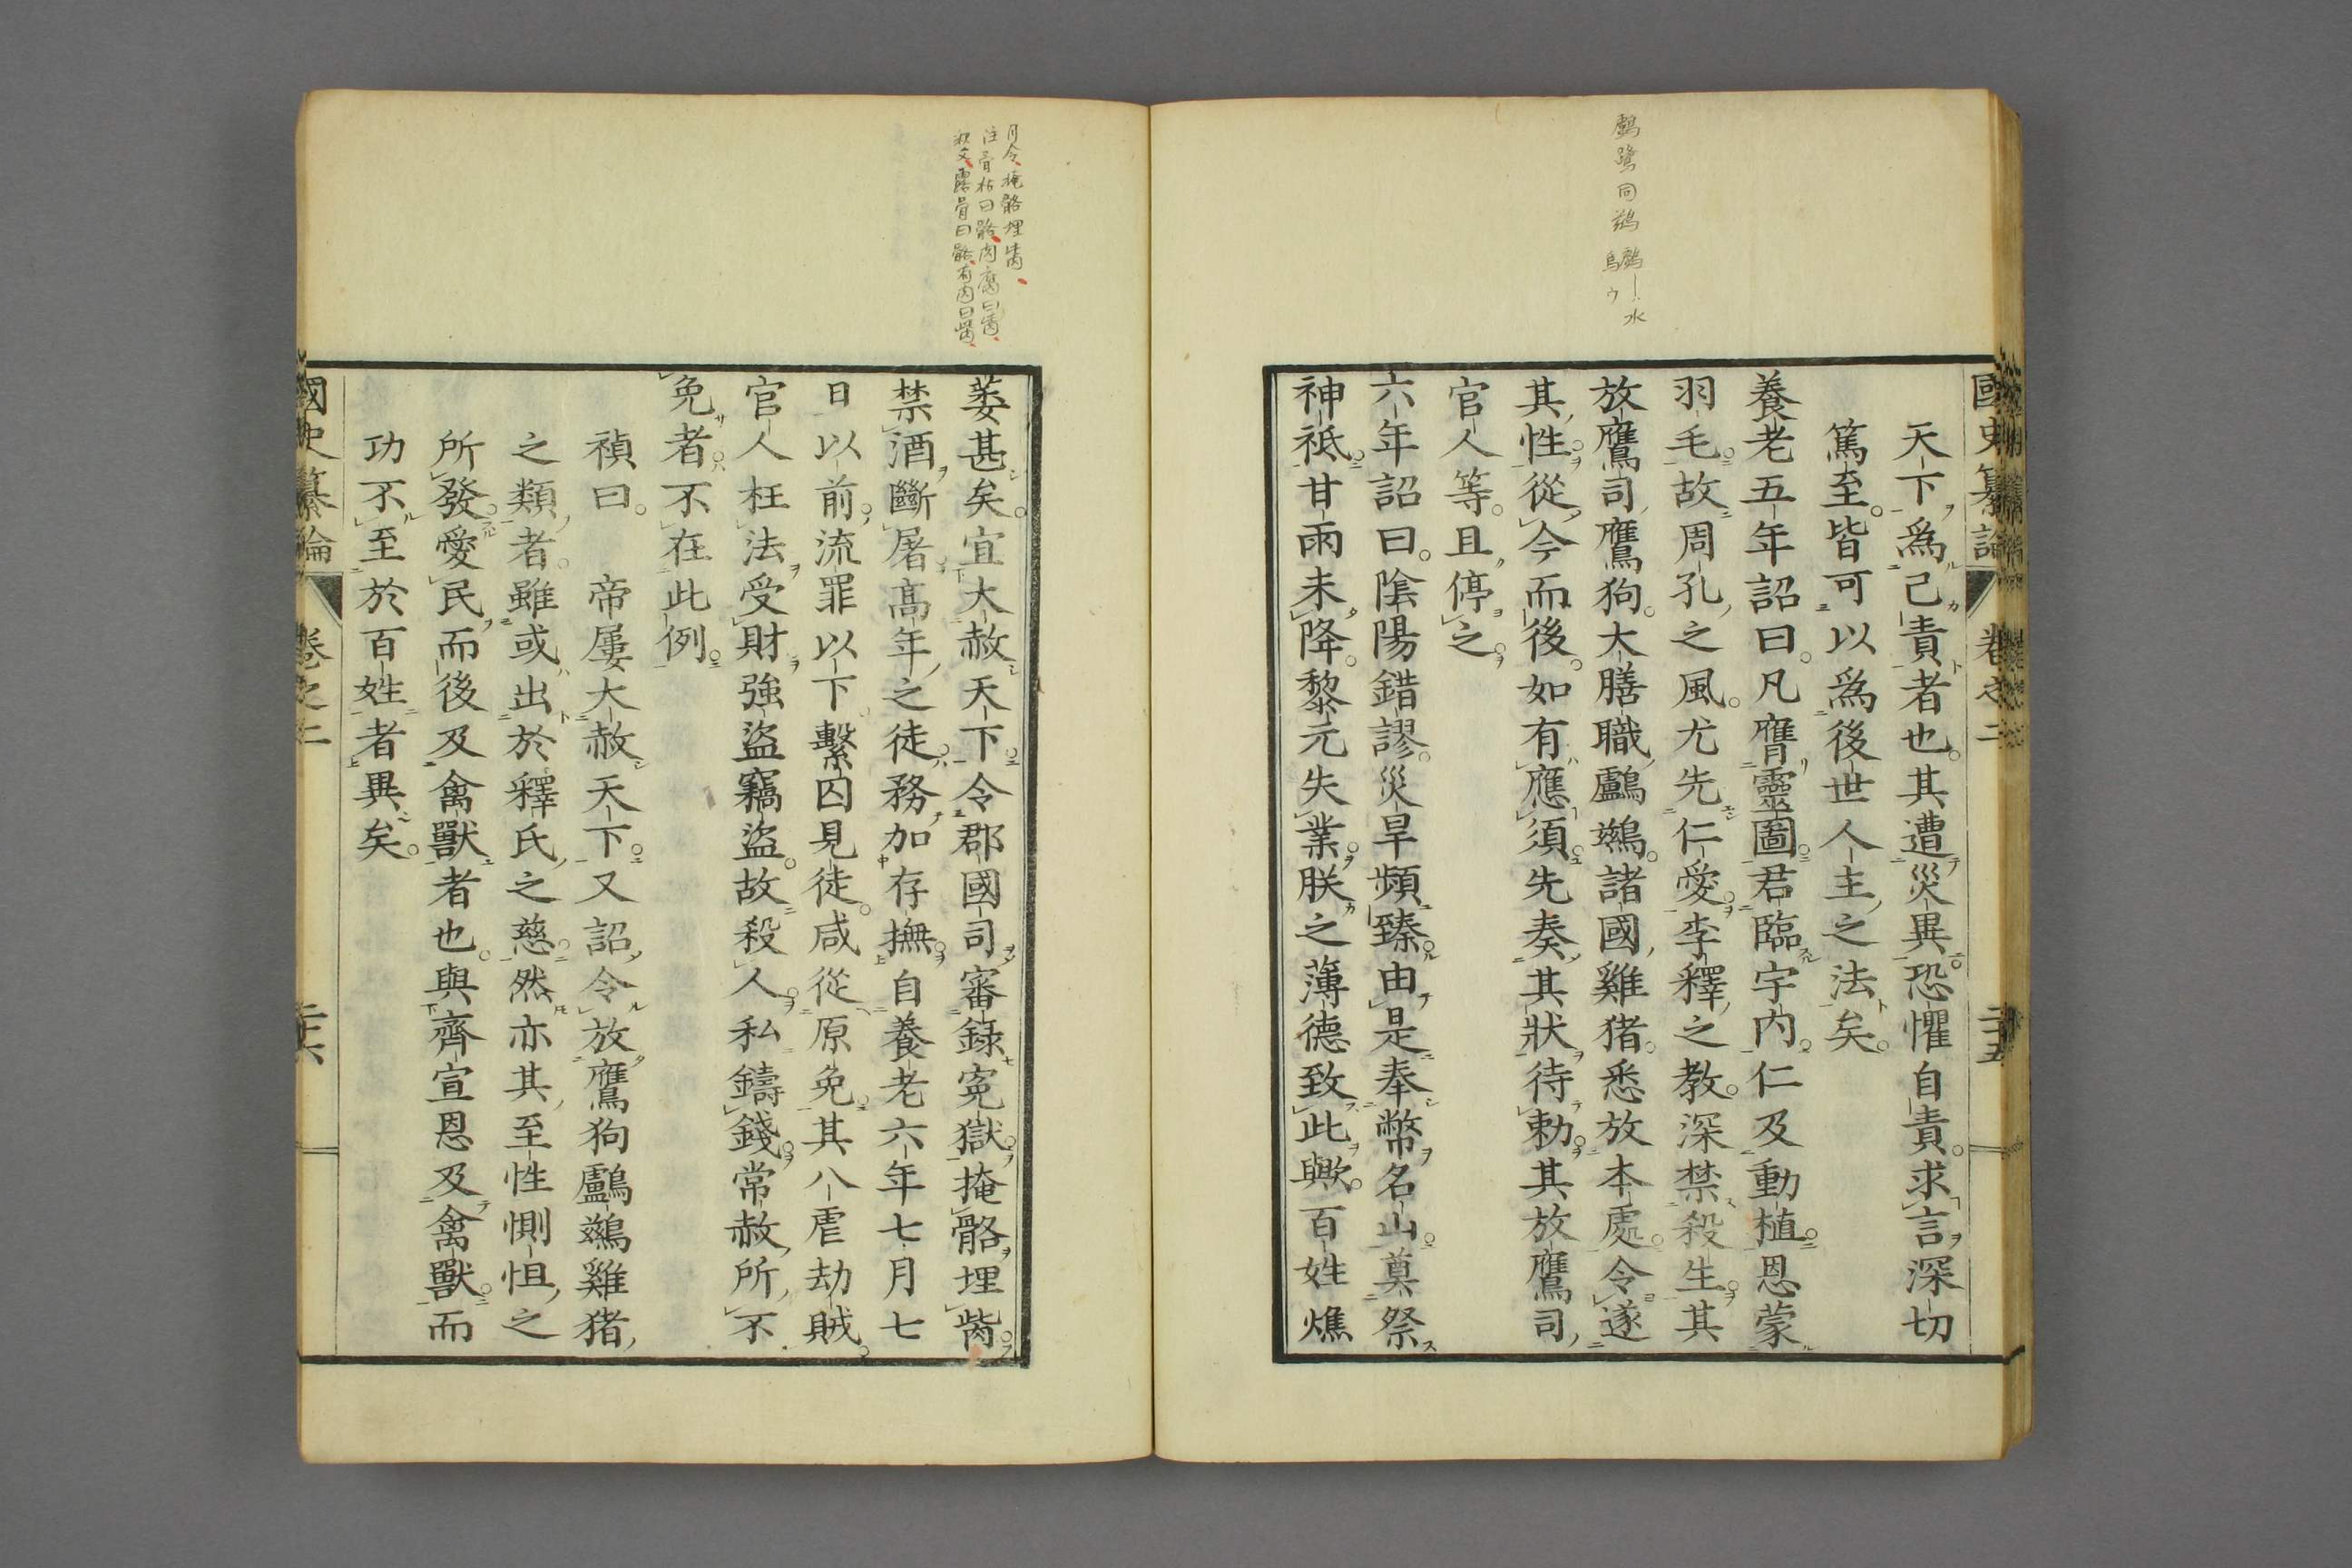 鸕鷺同鷀鸕｜水
烏ウ
國史纂論　卷之二　二十五
天下爲己責者也。其遭災異。恐懼自責。求言深切
篤至。皆可以爲後世人主之法矣。
養老五年詔曰。凡膺靈圖。君臨宇内。仁及動植。恩蒙
羽毛。故周孔之風。尤先仁愛。李釋之教。深禁殺生。其
放鷹司鷹狗。大膳職鸕鷀。諸國雞猪。悉放本處。令遂
其性。從今而後。如有應須。先奏其狀待勅。其放鷹司
官人等。且停之。
六年詔曰。陰陽錯謬。災旱頻臻。由是奉幣名山。奠祭
神祗。甘雨未降。黎元失業。朕之薄德致此歟。百姓燋
月令掩骼埋胔
注骨枯曰骼肉腐曰胔
釈文露骨曰骼有肉曰胔
萎甚矣。宜大赦天下。令郡國司審錄寃獄。掩骼埋胔。
禁酒斷屠。高年之徒。務加存撫。自養老六年七月七
日以前。流罪以下。繫囚見徒。咸從原免。其八虐劫賊。
官人枉法受財。強盜竊盜。故殺人。私鑄錢。常赦所不
免者。不在此例。
禎曰。　帝屢大赦天下。又詔令放鷹狗鸕鷀雞猪
之類者。雖或出於釋氏之慈。然亦其至性惻怛之
所發。愛民而後及禽獸者也。與齊宣恩及禽獸。而
功不至於百姓者異矣。
國史纂論　卷之二　二十六